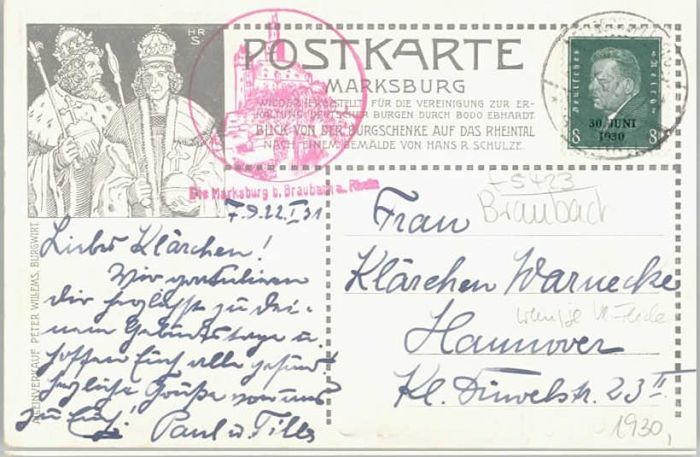 HR
S
POSTKARTE
MARKSBURG
WIEDERHERGESTELLT FÜR DIE VEREINIGUNG ZUR ER-
HALTUNG DEUTSCHER BURGEN DURCH BODO EBHARDT.
BLICK VON DER BURGSCHENKE AUF DAS RHEINTAL
NACH EINEM GEMÄLDE VON HANS R. SCHULZE.
Deutsches
Reich
30. JUNI
1930
8 8
Die Marksburg b. Braubach a. Rhein
Braubach
22. I 31
Liebes Klärchen!
Wir gratulieren
dir herzlichst zu dei-
nem Geburtstage u.
hoffen Euch alle gesund.
herzliche Grüße von uns
zu Euch!
Paul u Tilly
Frau
Klärchen Warnecke
Hannover
Kl. Düwelstr. 23 II
1930,
ALLEINVERKAUF PETER WILLEMS, BURGWIRT.